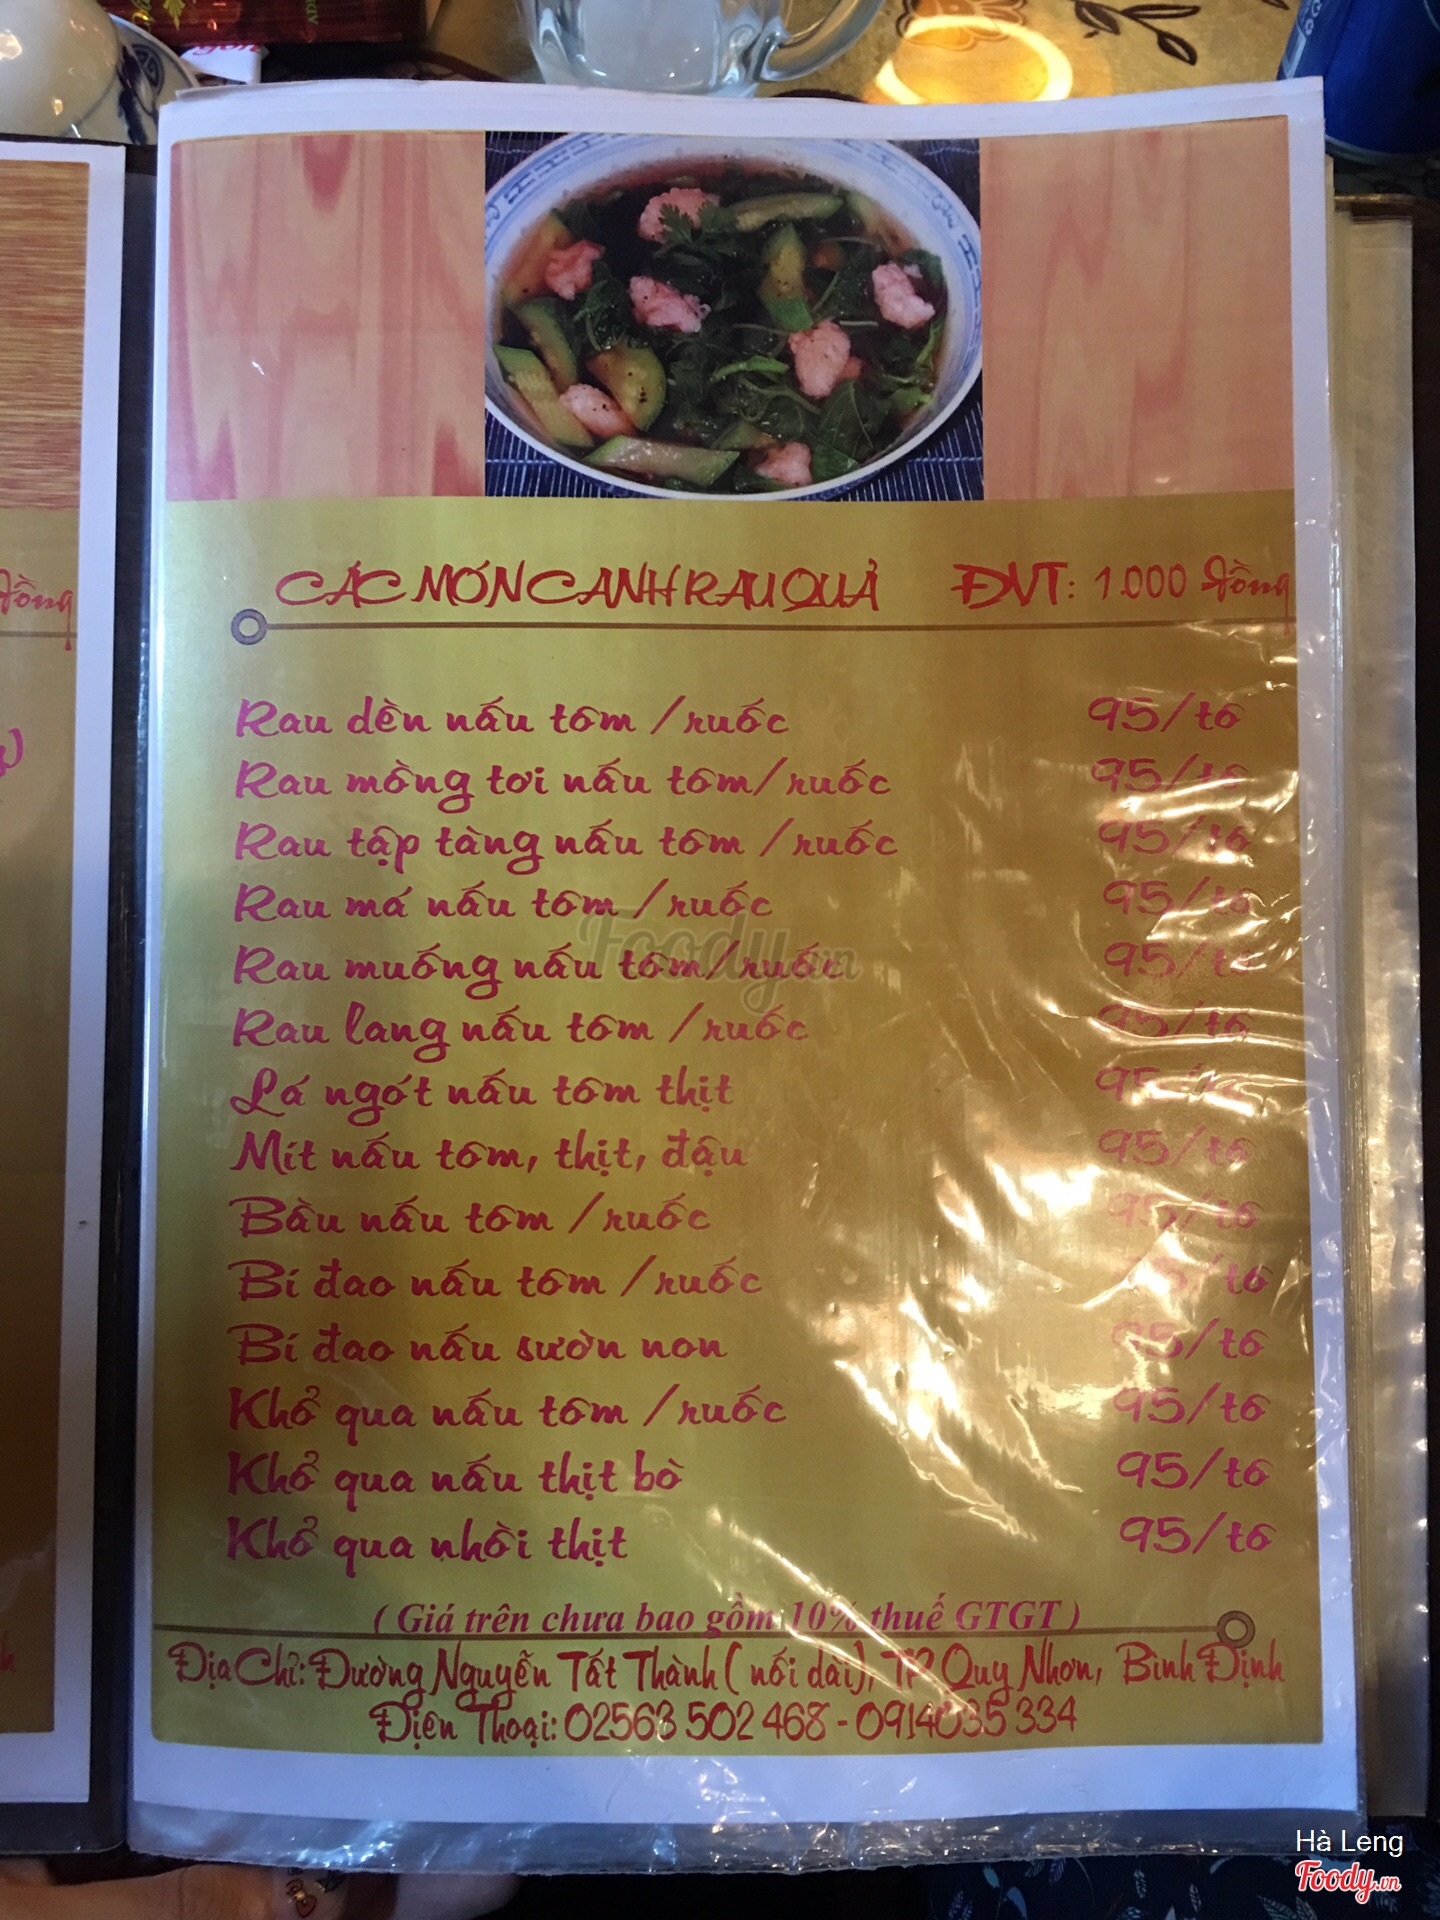 CÁC MÓN CANH RAU QUẢ ĐVT: 1.000 đồng
đồng
Rau dền nấu tôm /ruốc 95/tô
Rau mồng tơi nấu tôm/ruốc 95/tô
Rau tập tàng nấu tôm /ruốc 95/tô
Rau má nấu tôm /ruốc 95/tô
Rau muống nấu tôm/ruốc 95/tô
Rau lang nấu tôm /ruốc 95/tô
Lá ngót nấu tôm thịt 95/tô
Mít nấu tôm, thịt, đậu 95/tô
Bầu nấu tôm /ruốc 95/tô
Bí đao nấu tôm /ruốc 95/tô
Bí đao nấu sườn non 95/tô
Khổ qua nấu tôm /ruốc 95/tô
Khổ qua nấu thịt bò 95/tô
Khổ qua nhồi thịt 95/tô
( Giá trên chưa bao gồm 10% thuế GTGT )
Địa Chỉ: Đường Nguyễn Tất Thành ( nối dài), TP Quy Nhơn, Bình Định
Điện Thoại: 02563 502 468 - 0914035 334
Foody.vn
Hà Leng
Foody.vn